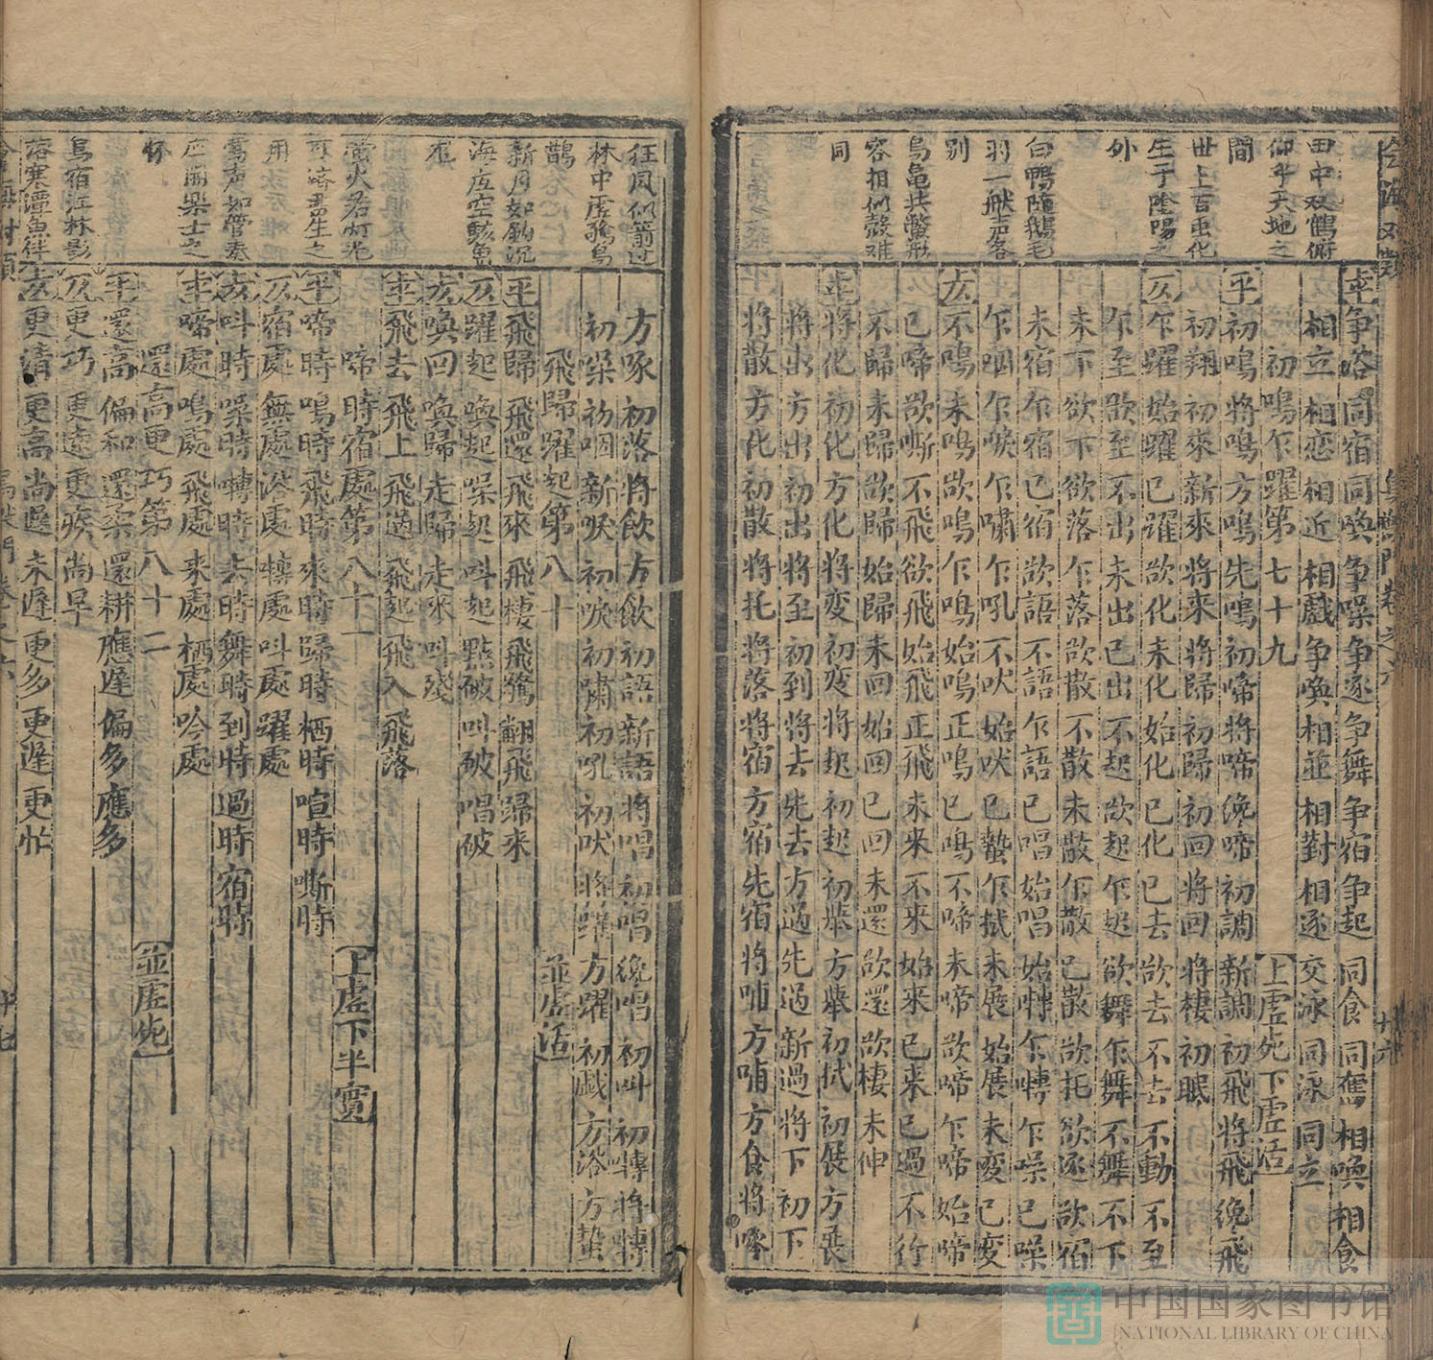 平 争浴 同宿 同喚 争噪 争逐 争舞 争宿 争起 同食 同奪 相喚 相食
相立 相恋 相近 相戲 争喚 相並 相對 相逐 交泳 同泳 同立
初鳴乍躍第七十九 上虛死下虛活
平 初鳴 將鳴 方鳴 先鳴 初啼 將啼 纔啼 初調 新調 初飛 將飛 纔飛
初翔 初來 新來 將來 將歸 初歸 初回 將回 將棲 初眠
仄 乍躍 始躍 已躍 欲化 未化 始化 已化 已去 欲去 不去 不動 不至
乍至 欲至 不出 未出 已出 不起 欲起 乍起 欲舞 乍舞 不舞 不下
未下 欲下 欲落 乍落 欲散 不散 未散 乍散 已散 欲托 欲逐 欲宿
未宿 乍宿 已宿 欲語 不語 乍語 已唱 始唱 始囀 乍囀 乍噪 已噪
乍咽 乍唳 乍嘯 乍吼 不吠 始吠 已蟄 乍拭 未展 始展 未變 已變
仄 不鳴 未鳴 欲鳴 乍鳴 始鳴 正鳴 已鳴 不啼 未啼 欲啼 乍啼 始啼
已啼 欲嘶 不飛 欲飛 始飛 正飛 未來 不來 始來 已來 已過 不行
不歸 未歸 欲歸 始歸 未回 始回 已回 未還 欲還 欲棲 未伸
平 將化 初化 方化 將變 初變 將起 初起 初集 方集 初拭 初展 方展
將出 方出 初出 將至 初到 將去 先去 方過 先過 新過 將下 初下
將散 方化 初散 將托 將落 將宿 方宿 先宿 將哺 方哺 方食 將啄
田中双鶴俯
仰乎天地之
間
世上百虫化
生于陰陽之
外
白鴨隨鵝毛
羽一般声各
別
烏亀共鱉形
容相似殼难
同
方啄 初落 將飲 方飲 初語 新語 將唱 初唱 纔唱 初叫 初囀 將囀
初噪 初咽 新唳 初唳 初嘯 初吼 初吠 將躍 方躍 初戲 方浴 方蟄
飛歸躍起第八十 並虛活
平 飛歸 飛還 飛來 飛棲 飛鶩 翻飛 歸來
仄 躍起 喚起 噪起 叫起 點破 叫破 唱破
仄 喚回 喚歸 走歸 走來 叫殘
平 飛去 飛上 飛過 飛起 飛入 飛落
啼時宿處第八十一 上虛下半實
平 啼時 鳴時 飛時 來時 歸時 栖時 喧時 嘶時
仄 宿處 無處 浴處 積處 叫處 躍處
仄 叫時 噪時 囀時 去時 舞時 到時 過時 宿時
平 啼處 鳴處 飛處 来處 栖處 吟處
還高更巧第八十二 並虛死
平 還高 偏和 還柔 還耕 應遲 偏多 應多
仄 更巧 更遠 更疾 尚早
仄 更清 更高 尚遲 未遲 更多 更遲 更忙
狂風似箭过
林中虛驚鳥
鵲
新月如鈎沉
海底空駭魚
龍
螢火若灯光
可濟君生之
用
鶯声如管奏
应酬樂士之
懷
烏宿江林影
落寒潭魚伴
中国国家图书馆
NATIONAL LIBRARY OF CHINA